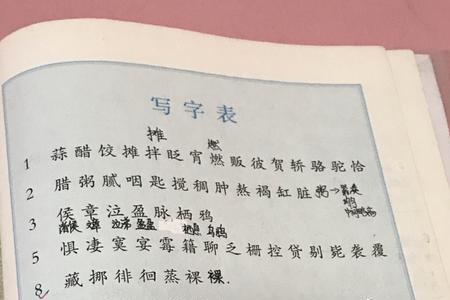 写字表
摊 燃
1 蒜醋饺摊拌眨宵燃贩彼贺轿骆驼恰
2 腊粥腻咽匙搅稠肿熬褐缸脏 粥→
3 侯章泣盈脉栖鸦
5 惧凄寞宴霉籍聊乏栅控贷剔毙袭覆
8 藏挪徘徊蒸裸 裸.